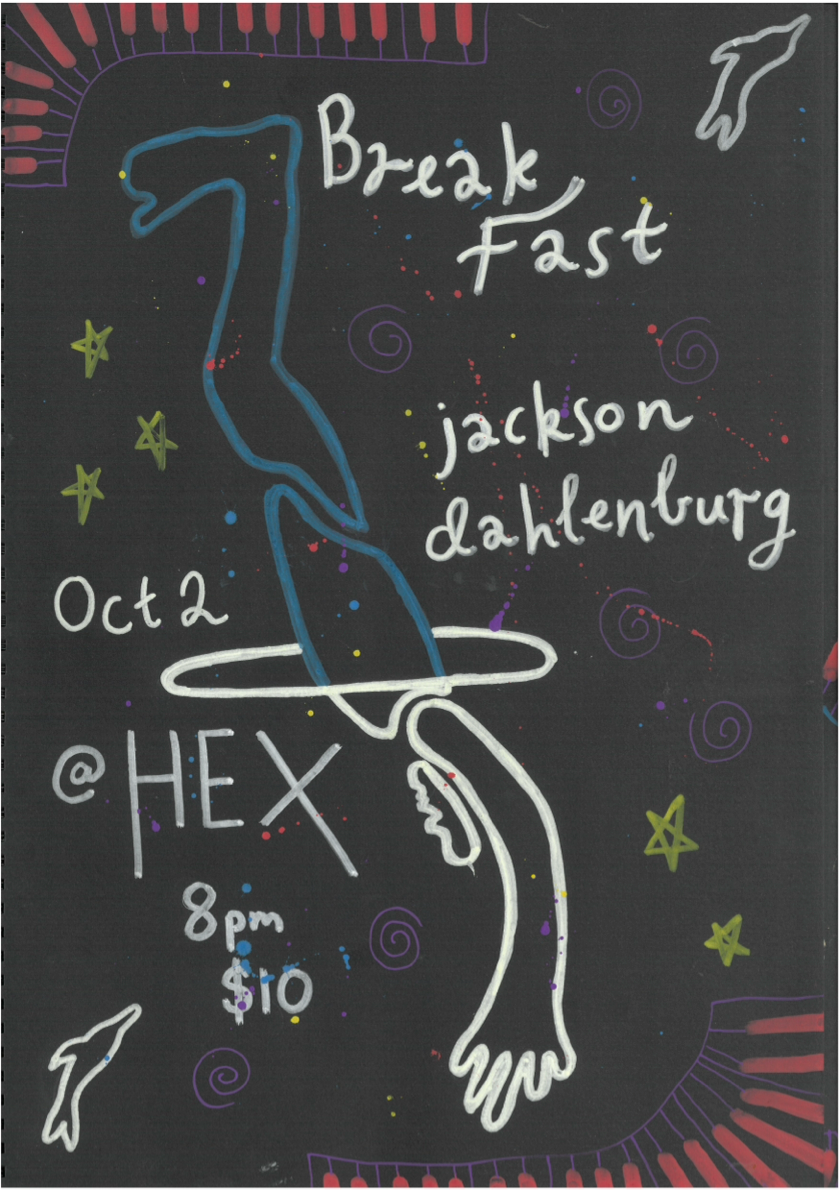 Break
Fast
jackson
dahlenburg
Oct 2
@ HEX
8pm
$10